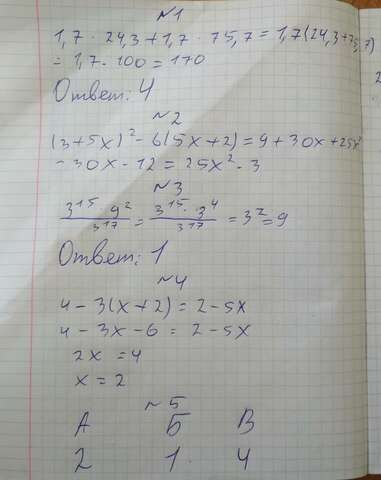 №1
1,7 · 24,3 + 1,7 · 75,7 = 1,7(24,3+75,7)
= 1,7 · 100 = 170
Ответ: 4
№2
(3+5x)² - 6(5x+2) = 9 + 30x + 25x²
- 30x - 12 = 25x² - 3
№3
3¹⁵ · 9² / 3¹⁷ = 3¹⁵ · 3⁴ / 3¹⁷ = 3² = 9
Ответ: 1
№4
4 - 3(x+2) = 2 - 5x
4 - 3x - 6 = 2 - 5x
2x = 4
x = 2
№5
А Б В
2 1 4